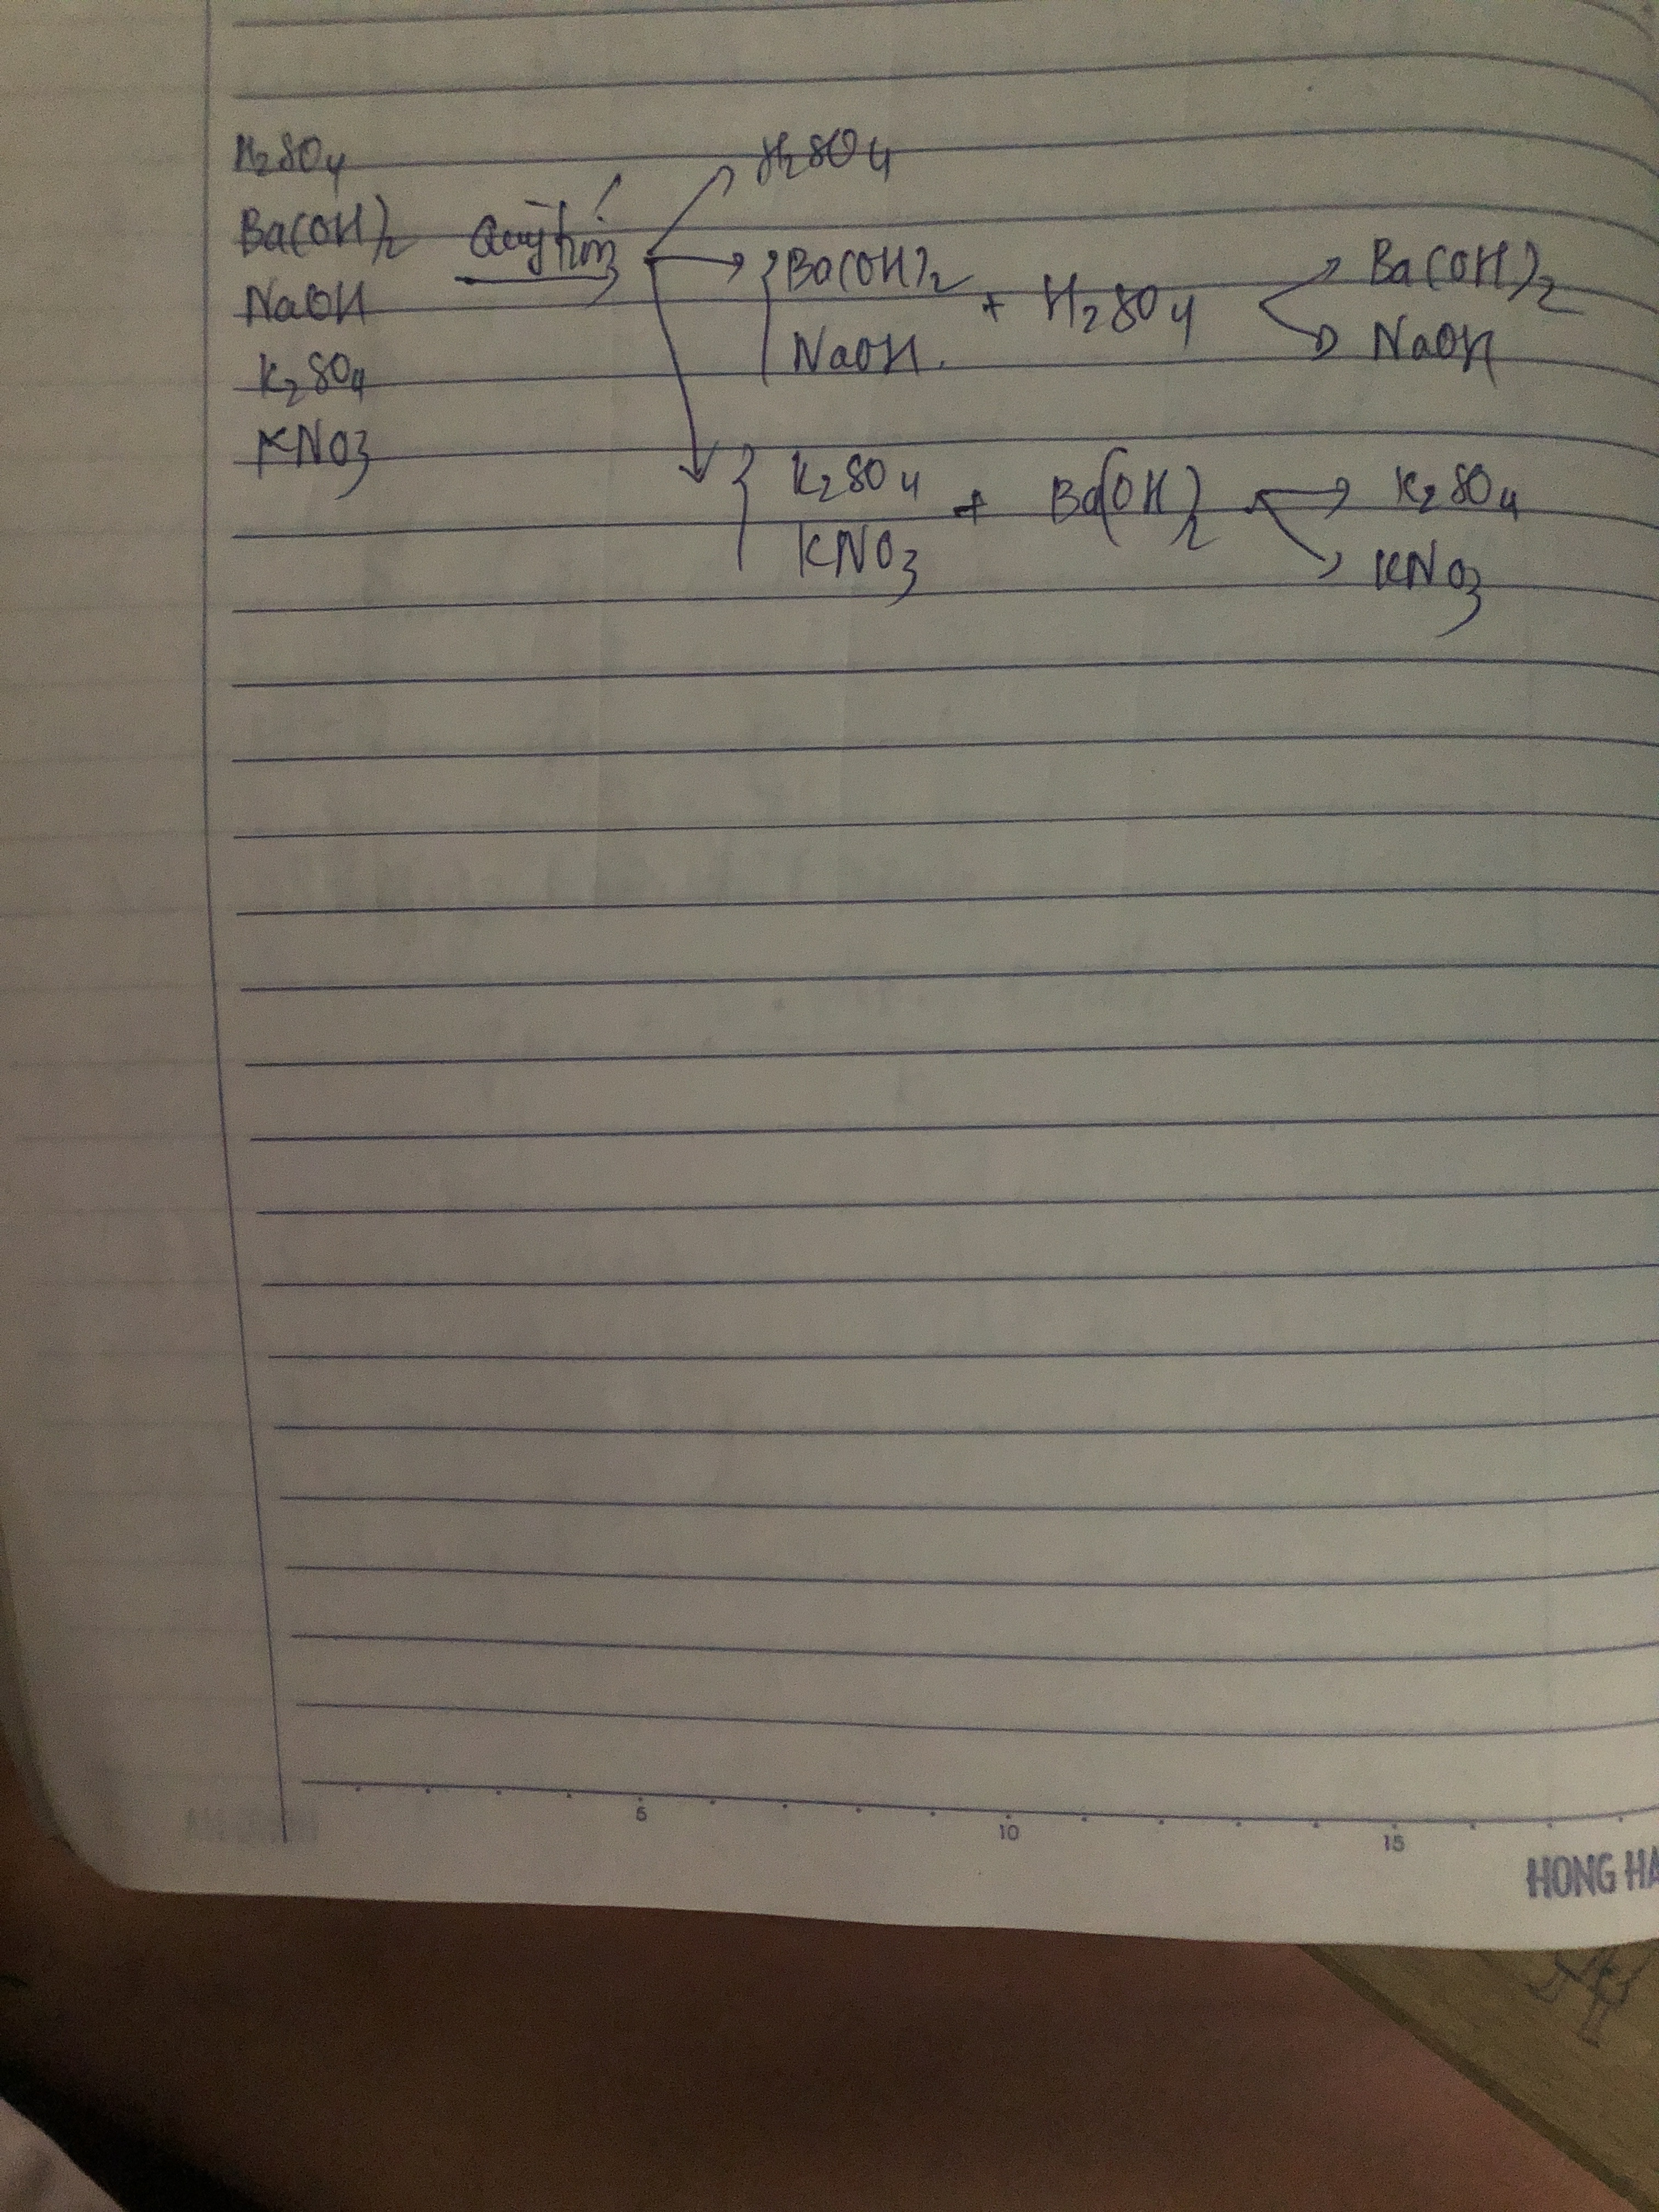 H2SO4
Ba(OH)2
NaOH
K2SO4
KNO3
Quỳ tím
H2SO4
Ba(OH)2
NaOH
+ H2SO4
Ba(OH)2
NaOH
K2SO4
KNO3
+ Ba(OH)2
K2SO4
KNO3
5 10 15
HONG HA